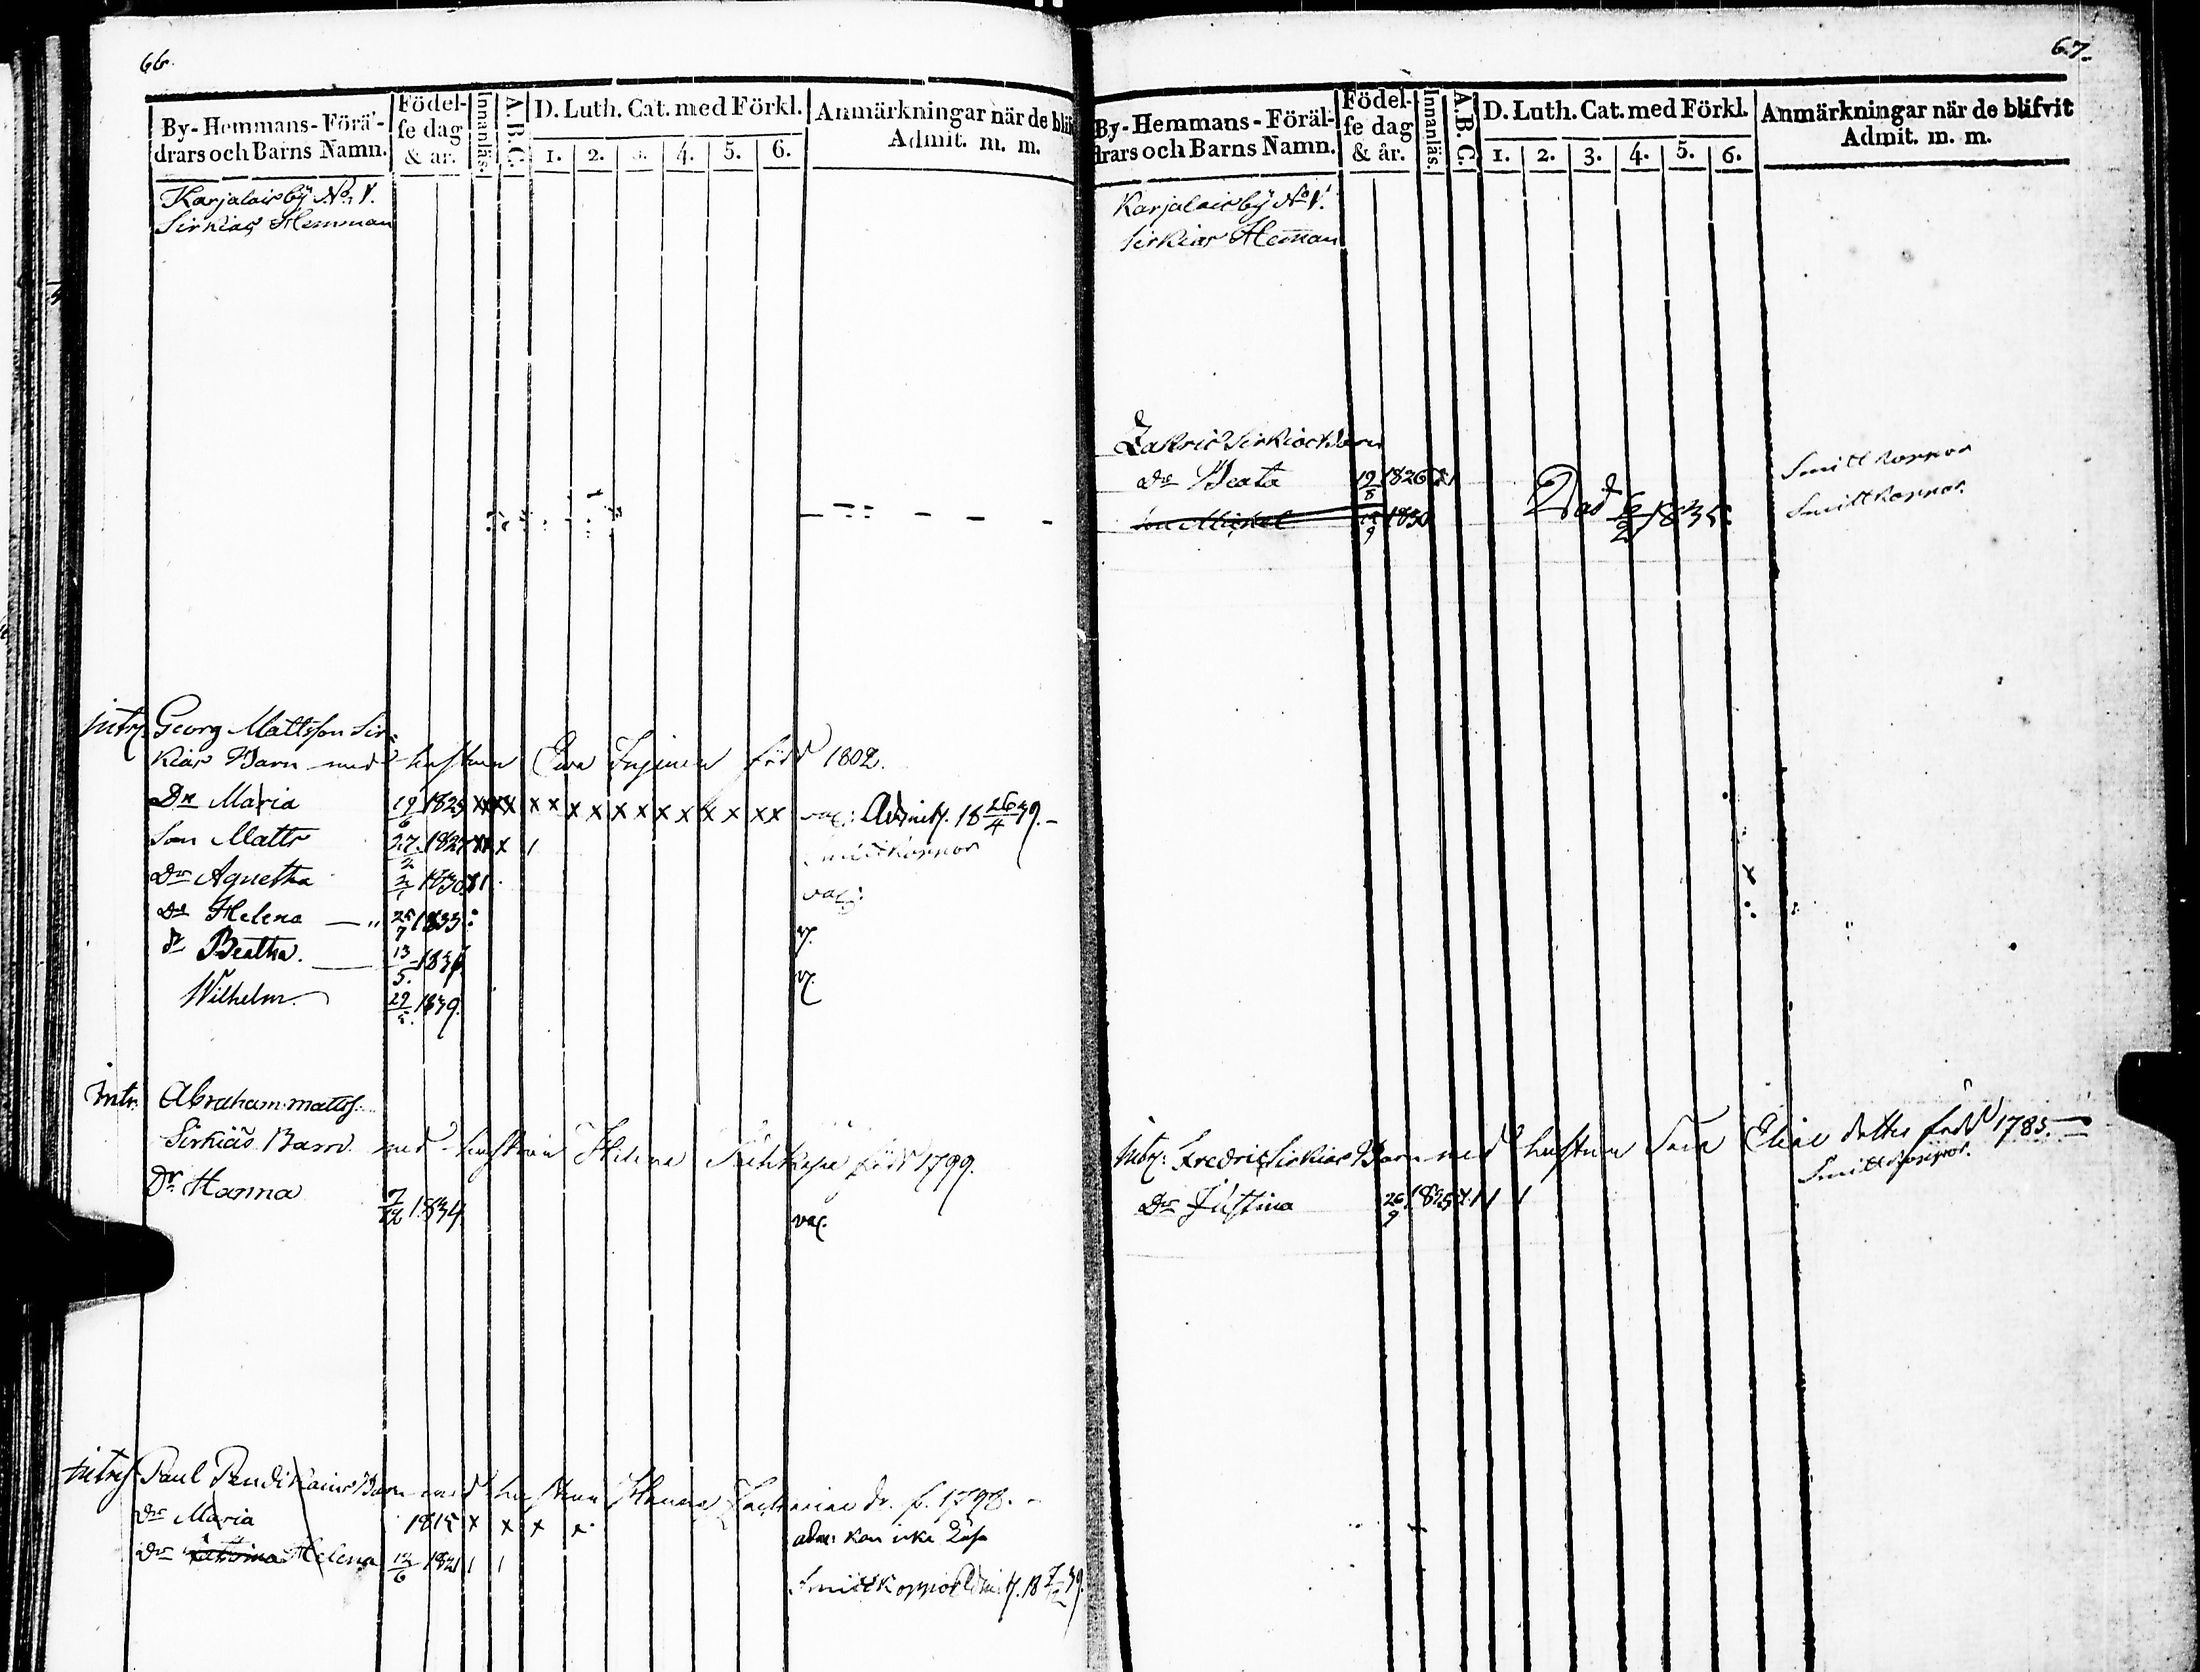 66.
By-Hemmans-Förä-
drars och Barns Namn.
Födel-
se dag
& år.
Innanläs.
A.B.C.
D. Luth. Cat. med Förkl.
1. 2. 3. 4. 5. 6.
Anmärkningar när de bli
Admit. m. m.
Karjalais by No 1.
Sirkias Hemman
intry. Georg Mattsson Sir-
kias Barn med hustrun Ewa född 1802.
Dr Maria 19/6 1825 x x x x x x x x x x x x x x x vac: Admitt. 18 26/4 39.
Son Matts 27/2 1827 x x x 1 Smittkoppor
Dr Agnetha 2/7 1830 vac:
Dr Helena 25/7 1833 v.
Dr Beatha. 13/5. 1836 v.
Wilhelm. 29/5. 1839.
intr. Abraham matts.
Sirkias Barn. med hustrun Helena född 1799.
Dr Hanna 7/12 1834 vac.
intry Paul Pendikains Barn med hustrun Hanna Zachariae dr. f. 1798.
Dr Maria 1815 x x x x adm: kan icke Läsa
Dr Helena 12/6 1821 1 1 Smittkoppor Admitt. 18 7/12 39.
67.
By-Hemmans-Föräl-
drars och Barns Namn.
Födel-
se dag
& år.
Innanläs.
A.B.C.
D. Luth. Cat. med Förkl.
1. 2. 3. 4. 5. 6.
Anmärkningar när de blifvit
Admit. m. m.
Karjalais by No 1.
Sirkias Heman
Zakris Sirkias Barn
Dr Beata 19/8 1826 Smittkoppor
Son Michel 15/9 1830 Död 6/2 1835. Smittkoppor.
intry: Fredric Sirkias Barn med hustrun Sara Eliae dotter född 1785.
Dr Justina 26/9 1825 1 1 1 Smittkoppor.